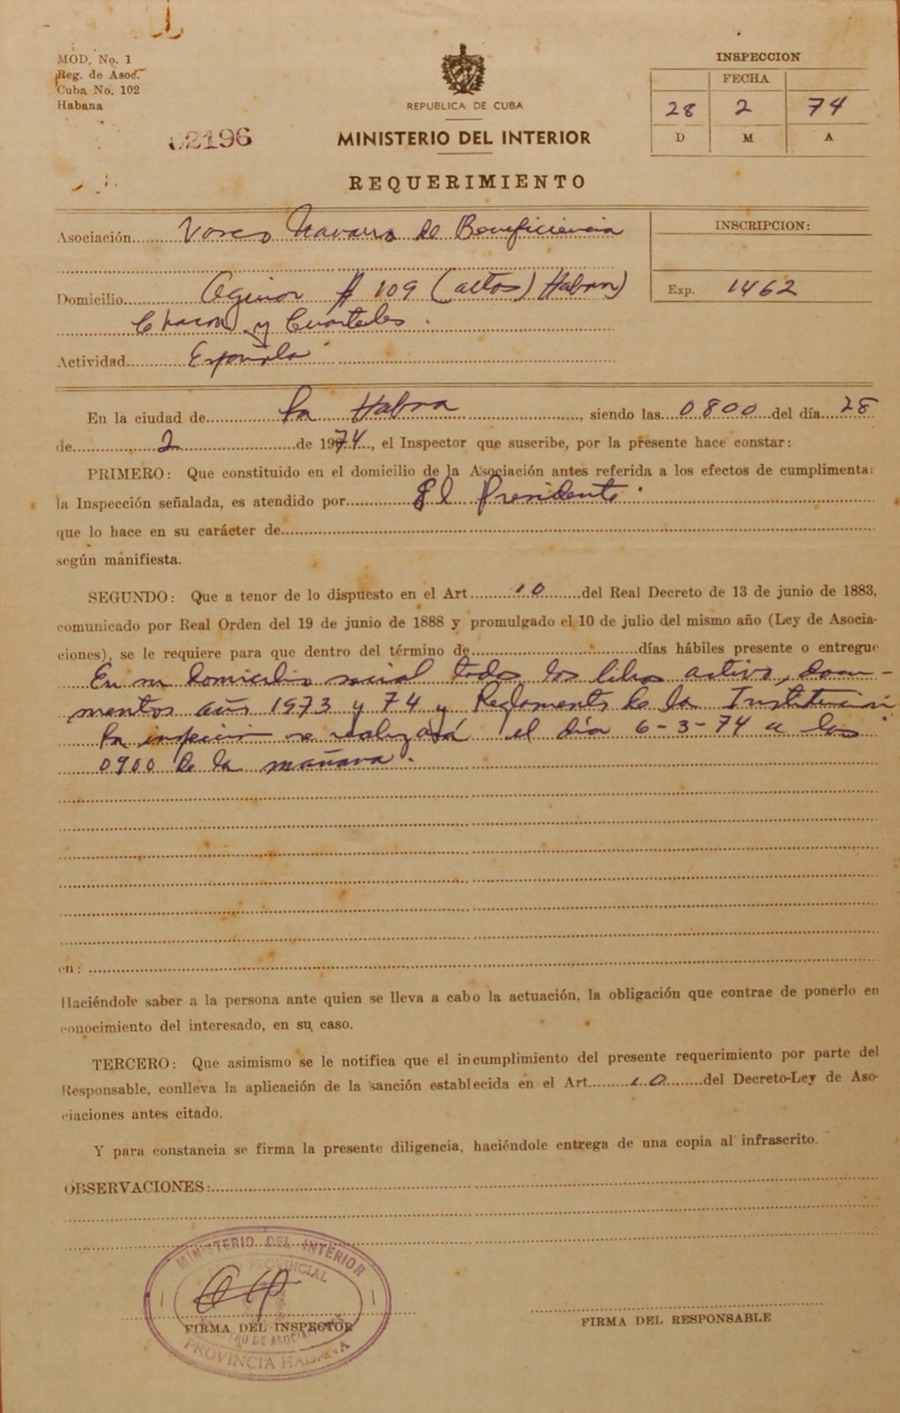 MOD. No. 1
Reg. de Asoc.
Cuba No. 102
Habana
02196
REPUBLICA DE CUBA
MINISTERIO DEL INTERIOR
REQUERIMIENTO
INSPECCION
FECHA
28 2 74
D M A
Asociación Vasco Navarro de Beneficiencia
INSCRIPCION:
Domicilio Aguiar # 109 (altos) Habana
Exp. 1462
Chacon y Cuarteles.
Actividad Española
En la ciudad de La Habana, siendo las 0800 del día 28
de 2 de 1974, el Inspector que suscribe, por la presente hace constar:
PRIMERO: Que constituido en el domicilio de la Asociación antes referida a los efectos de cumplimentar
la Inspección señalada, es atendido por El Presidente.
que lo hace en su carácter de
según manifiesta.
SEGUNDO: Que a tenor de lo dispuesto en el Art. 10 del Real Decreto de 13 de junio de 1883,
comunicado por Real Orden del 19 de junio de 1888 y promulgado el 10 de julio del mismo año (Ley de Asocia-
ciones), se le requiere para que dentro del término de días hábiles presente o entregue
En su domicilio social todos los libros activo, docu-
mentos año 1973 y 74 y Reglamento de la Institución
La inspeccion se realizará el día 6-3-74 a las
0900 de la mañana.
en:
Haciéndole saber a la persona ante quien se lleva a cabo la actuación, la obligación que contrae de ponerlo en
conocimiento del interesado, en su caso.
TERCERO: Que asimismo se le notifica que el incumplimiento del presente requerimiento por parte del
Responsable, conlleva la aplicación de la sanción establecida en el Art. 10 del Decreto-Ley de Aso-
ciaciones antes citado.
Y para constancia se firma la presente diligencia, haciéndole entrega de una copia al infrascrito.
OBSERVACIONES:
MINISTERIO DEL INTERIOR
PROVINCIAL
FIRMA DEL INSPECTOR
PROVINCIA HABANA
FIRMA DEL RESPONSABLE